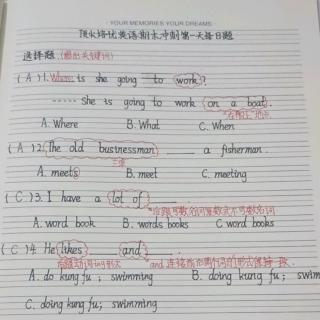 · YOUR MEMORIES YOUR DREAMS ·
顶尖培优英语期末冲刺第一天择日题
选择题.(圈出关键词)
( A )1.Where is she going to work?
----- She is going to work on a boat.
"在船上"地点
A. Where B. What C. When
( A )2.The old bustnessman ___ a fisherman.
三单
A. meets B. meet C. meeting
( C )3. I have a lot of ___
*后跟可数名词复数或不可数名词
A. word book B. words books C word books
( C )4. He likes ___ and ___.
后跟动词ing形式 *and 连接前后两个词的形式保持一致.
A. do kung fu ; swimming B. doing kung fu; swim
C. doing kung fu; swimming